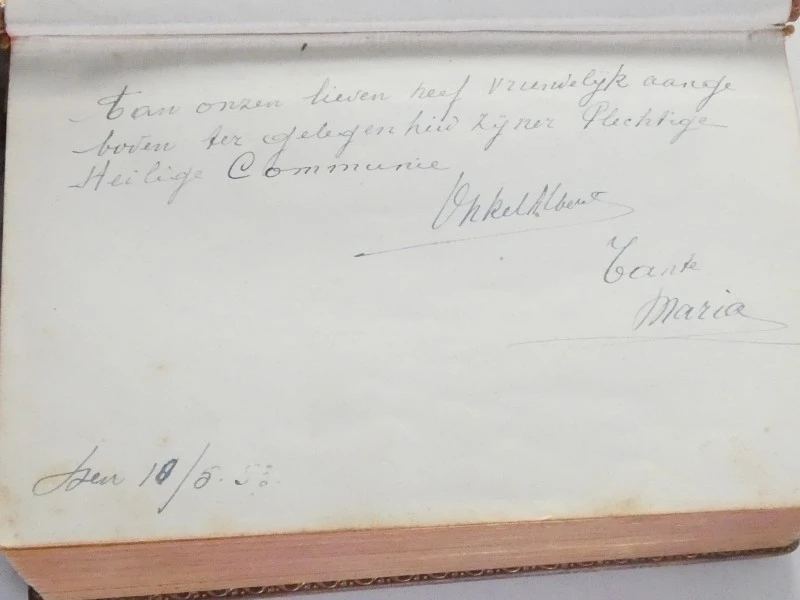 Aan onzen lieven neef vriendelijk aange
boden ter gelegenheid zijner Plechtige
Heilige Communie
Onkel Albert
Tante
Maria
Den 10/5.53.